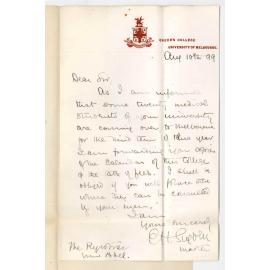 QUEEN'S COLLEGE
UNIVERSITY OF MELBOURNE.
Aug 10th 99
Dear Sir
As I am informed
that some twenty medical
students of your university
are coming over to Melbourne
for the third term of this year
I am forwarding you copies
of the Calendar of this College
& the of fees. I shall be
obliged if you will place
where they can be consulted
by your men.
I am
Yours sincerely
E H Sugden
Master
The Registrar
Univ Adel.